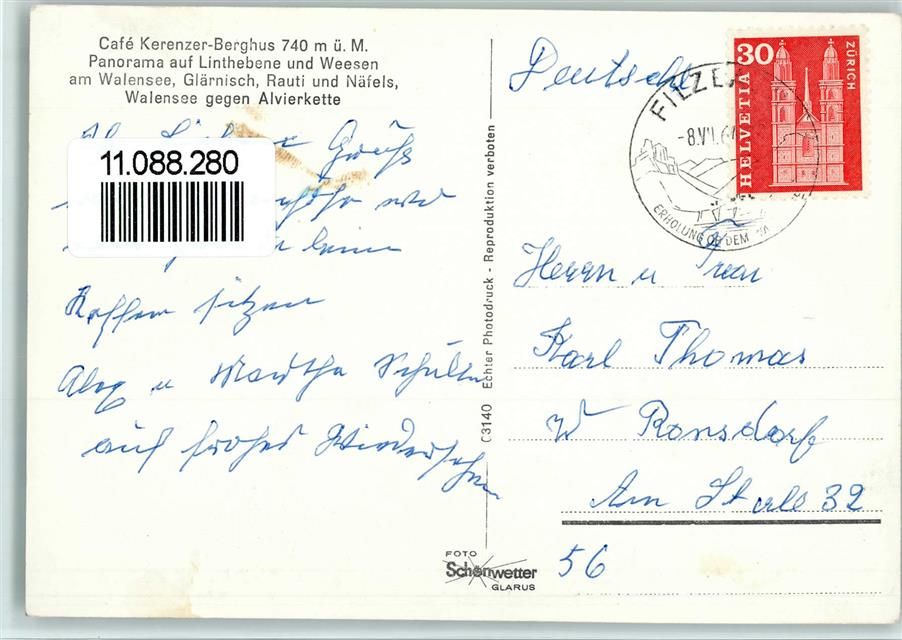 Café Kerenzer-Berghus 740 m ü. M.
Panorama auf Linthebene und Weesen
am Walensee, Glärnisch, Rauti und Näfels,
Walensee gegen Alvierkette
Grüße
11.088.280
wo
beim
Kaffee sitzen
Alex u Martha
auf frohes Wiedersehn
C3140 Echter Photodruck - Reproduktion verboten
FOTO
Schönwetter
GLARUS
HELVETIA
30
ZÜRICH
FILZ
-8.VII.6
ERHOLUNG OB DEM WA
Herrn u Frau
Karl Thomas
W Ronsdorf
Am 32
56